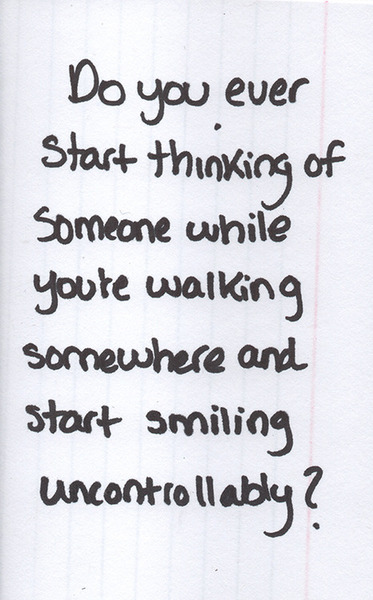 Do you ever
start thinking of
someone while
you're walking
somewhere and
start smiling
uncontrollably?